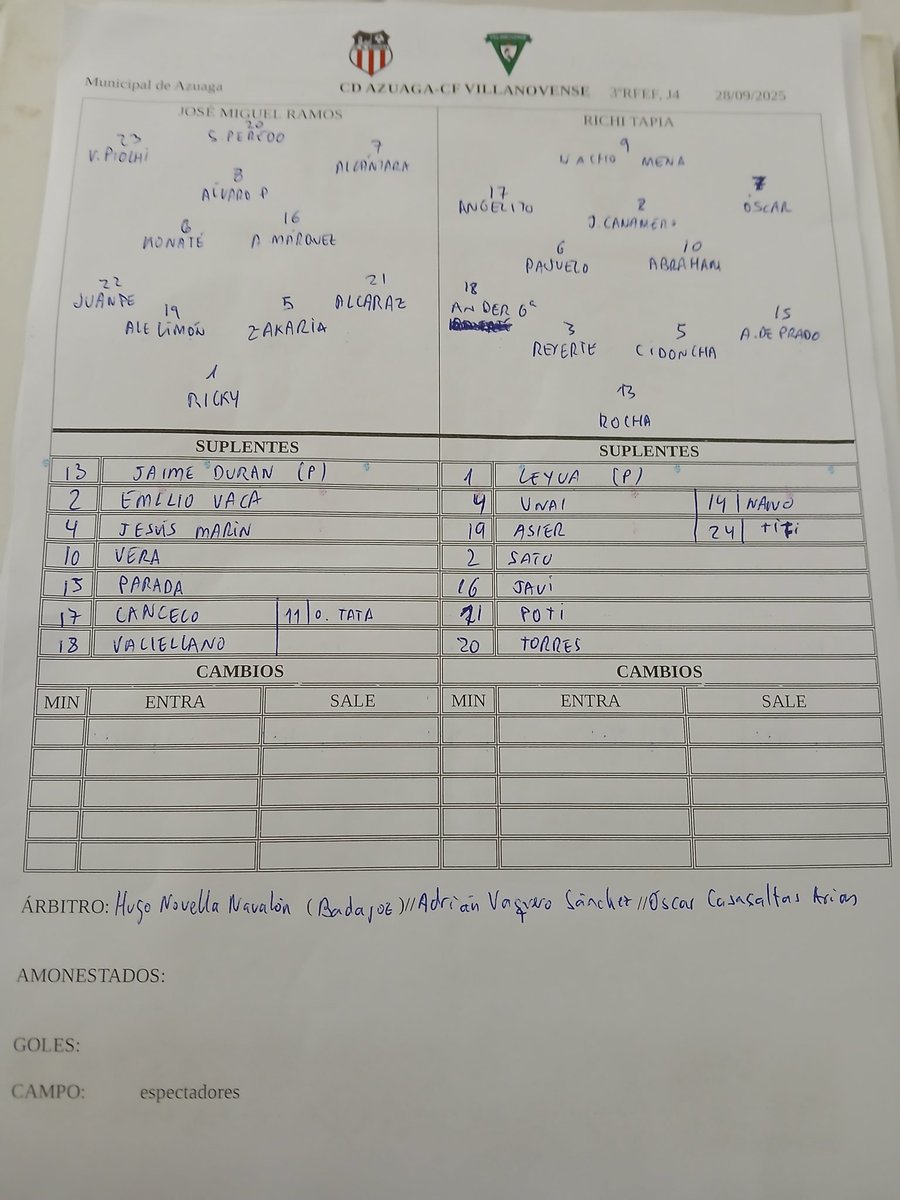 Municipal de Azuaga CD AZUAGA-CF VILLANOVENSE 3ªRFEF, J4 28/09/2025
JOSÉ MIGUEL RAMOS
23 20 7
V. PIOLHI S. PEREDO ALCÁNTARA
8
ÁLVARO P
6 16
KONATÉ A. MÁRQUEZ
22 19 5 21
JUANPE ALE LIMÓN ZAKARIA ALCARAZ
1
RICKY
RICHI TAPIA
9
NACHO MENA
17 8 7
ANGELITO J. CANAMERO ÓSCAR
6 10
PAJUELO ABRAHAM
18 3 5 15
ANDER Gª REYERTE CIDONCHA A. DE PRADO
13
ROCHA
SUPLENTES
13 JAIME DURAN (P)
2 EMILIO VACA
4 JESÚS MARIN
10 VERA
15 PARADA
17 CANCELO 11 O. TATA
18 VALIELLANO
SUPLENTES
1 LEYVA (P)
4 UNAI 14 NANO
19 ASIER 24 TITI
2 SATU
16 JAVI
21 POTI
20 TORRES
CAMBIOS CAMBIOS
MIN ENTRA SALE MIN ENTRA SALE
ÁRBITRO: Hugo Novella Navalón (Badajoz)//Adrián Vaquero Sánchez//Óscar Casasaltas Arias
AMONESTADOS:
GOLES:
CAMPO: espectadores